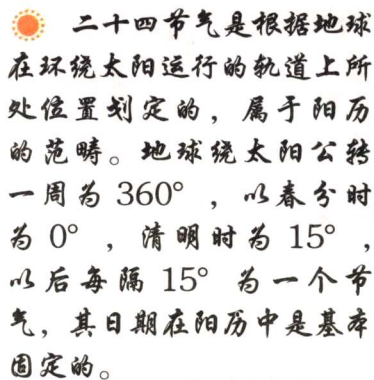 二十四节气是根据地球
在环绕太阳运行的轨道上所
处位置划定的，属于阳历
的范畴。地球绕太阳公转
一周为 360°，以春分时
为 0°，清明时为 15°，
以后每隔 15° 为一个节
气，其日期在阳历中是基本
固定的。